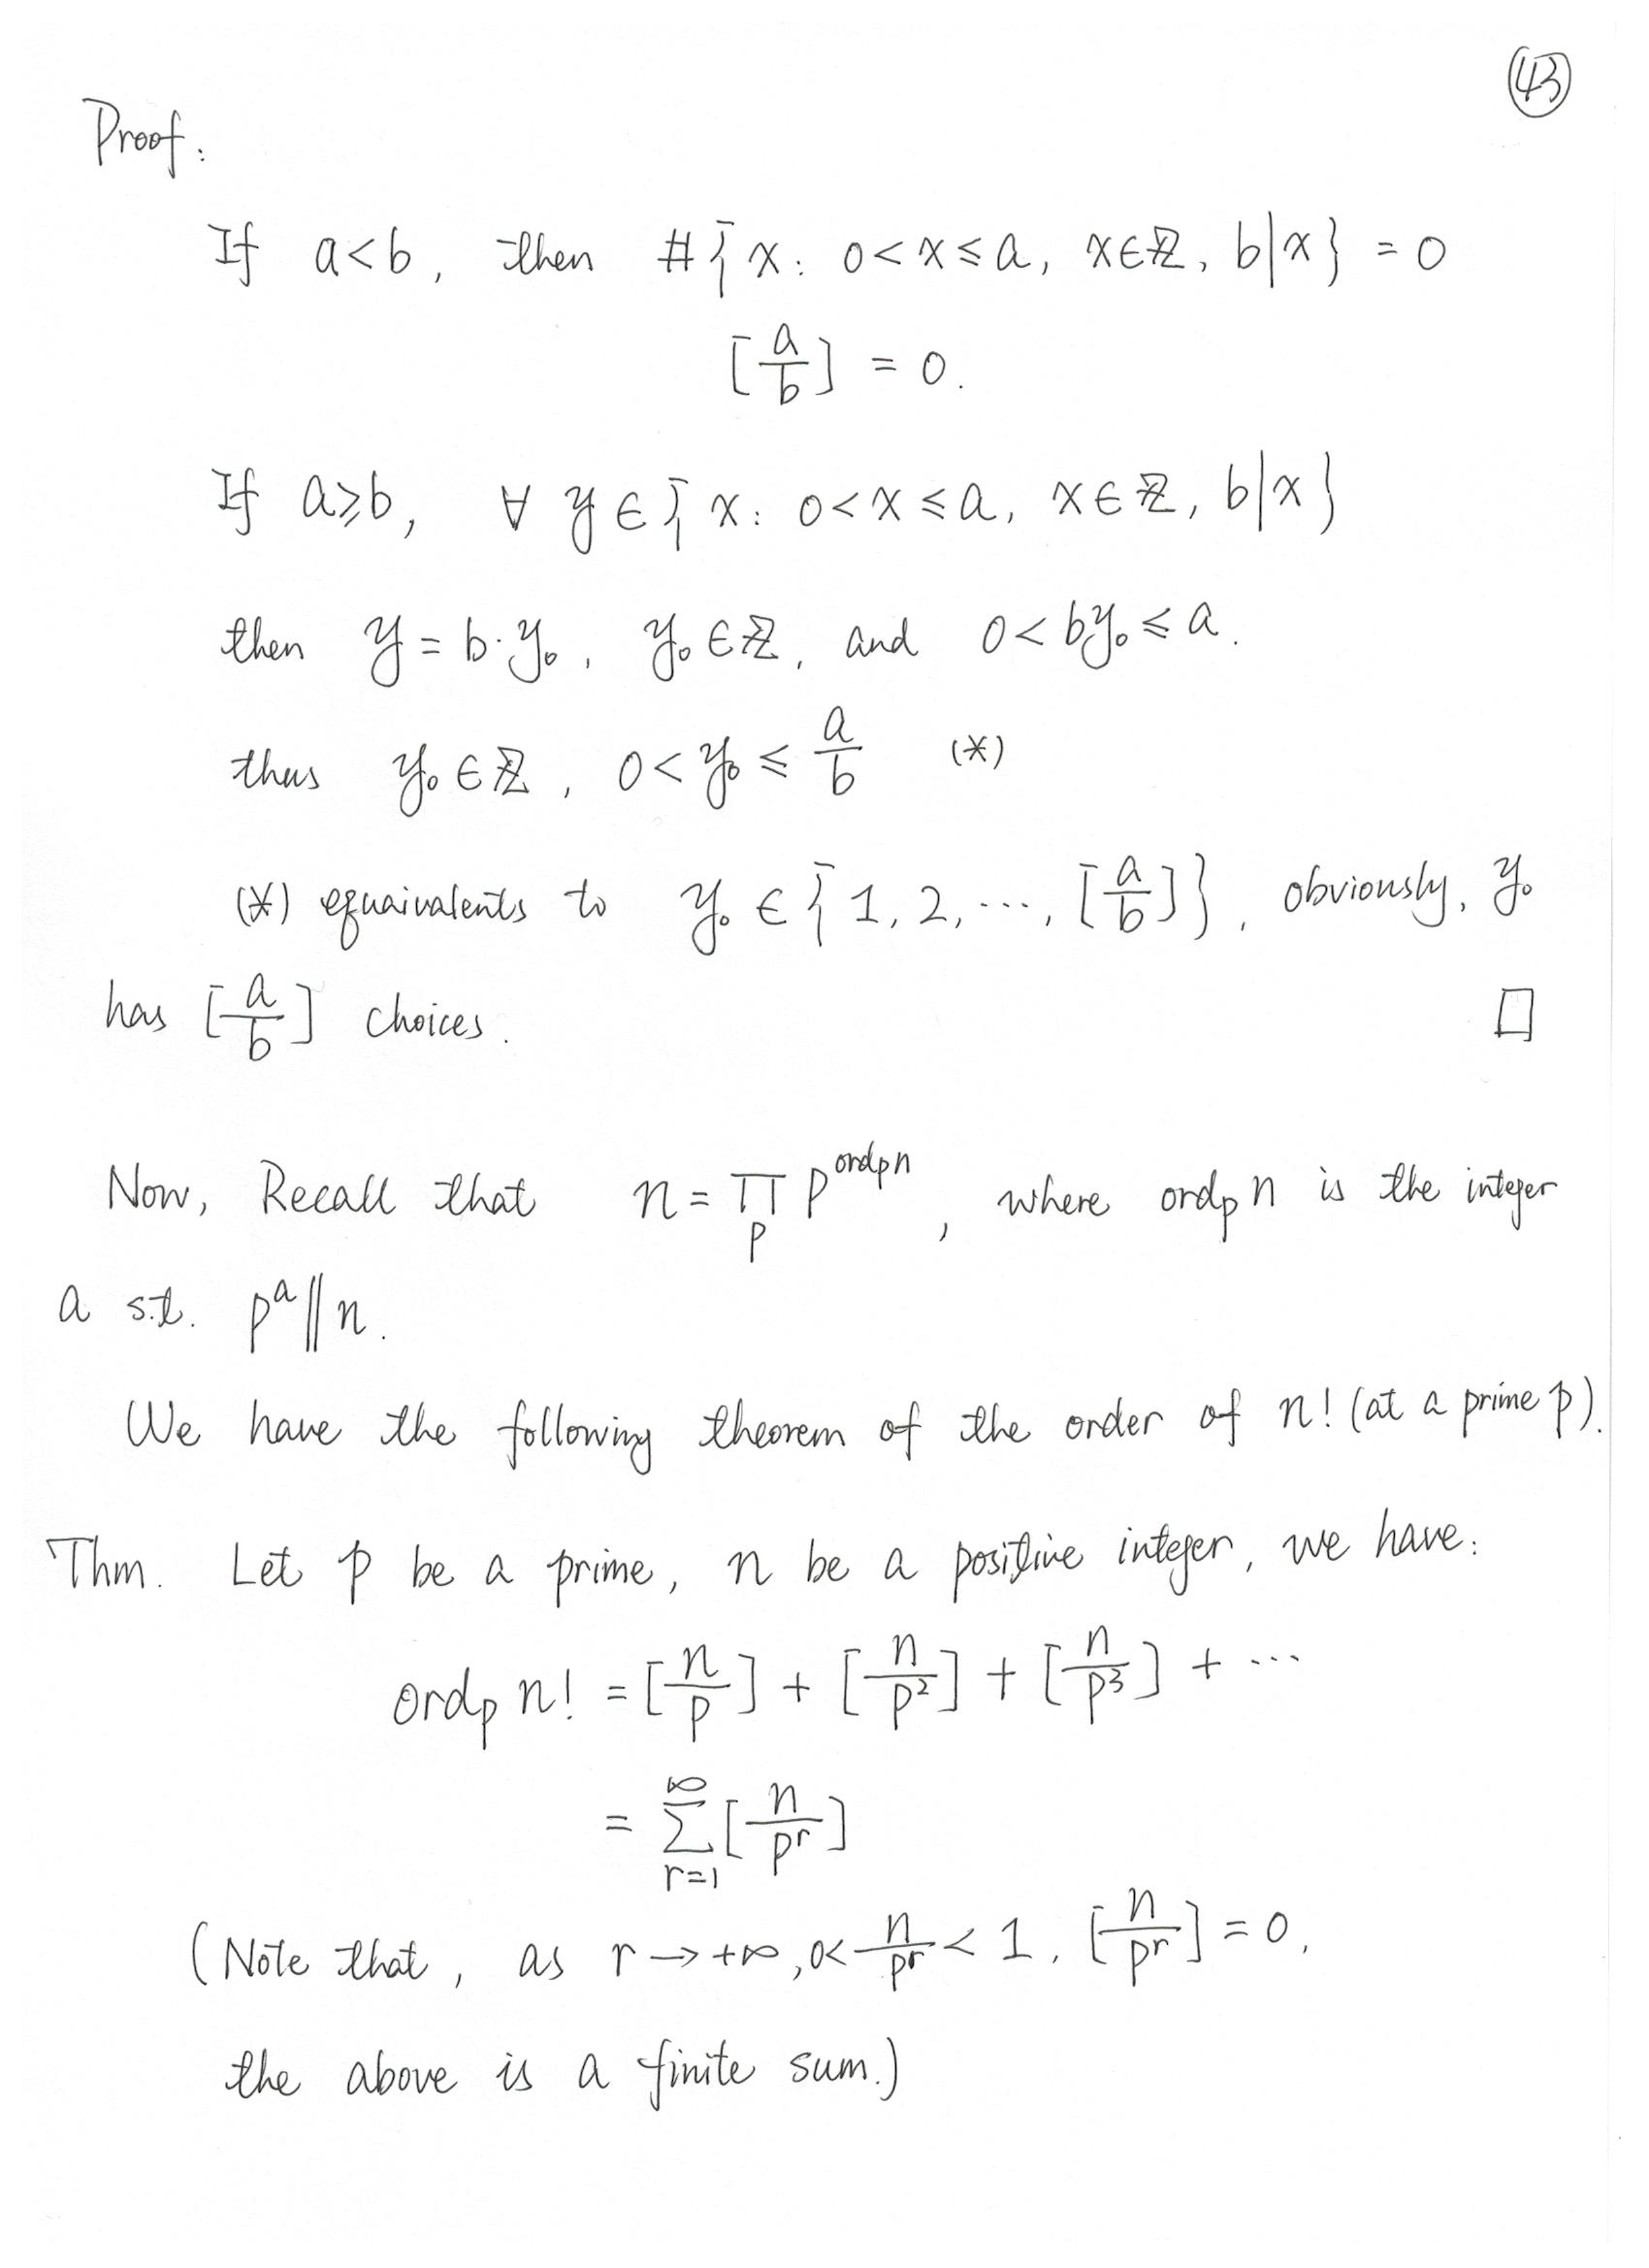 ㊸
Proof:
If a<b, then #{x: 0<x≤a, x∈ℤ, b|x} = 0
[a/b] = 0.
If a≥b, ∀ y∈{x: 0<x≤a, x∈ℤ, b|x}
then y = b·y₀, y₀∈ℤ, and 0<by₀≤a.
thus y₀∈ℤ, 0<y₀≤a/b (*)
(*) equaivalents to y₀∈{1, 2, ..., [a/b]}, obviously, y₀
has [a/b] choices. □
Now, Recall that n = ∏_p p^{ord_p n}, where ord_p n is the integer
a s.t. p^a || n.
We have the following theorem of the order of n! (at a prime p).
Thm. Let p be a prime, n be a positive integer, we have:
ord_p n! = [n/p] + [n/p²] + [n/p³] + ...
= ∑_{r=1}^{∞} [n/p^r]
(Note that, as r → +∞, 0< n/p^r < 1, [n/p^r] = 0,
the above is a finite sum.)